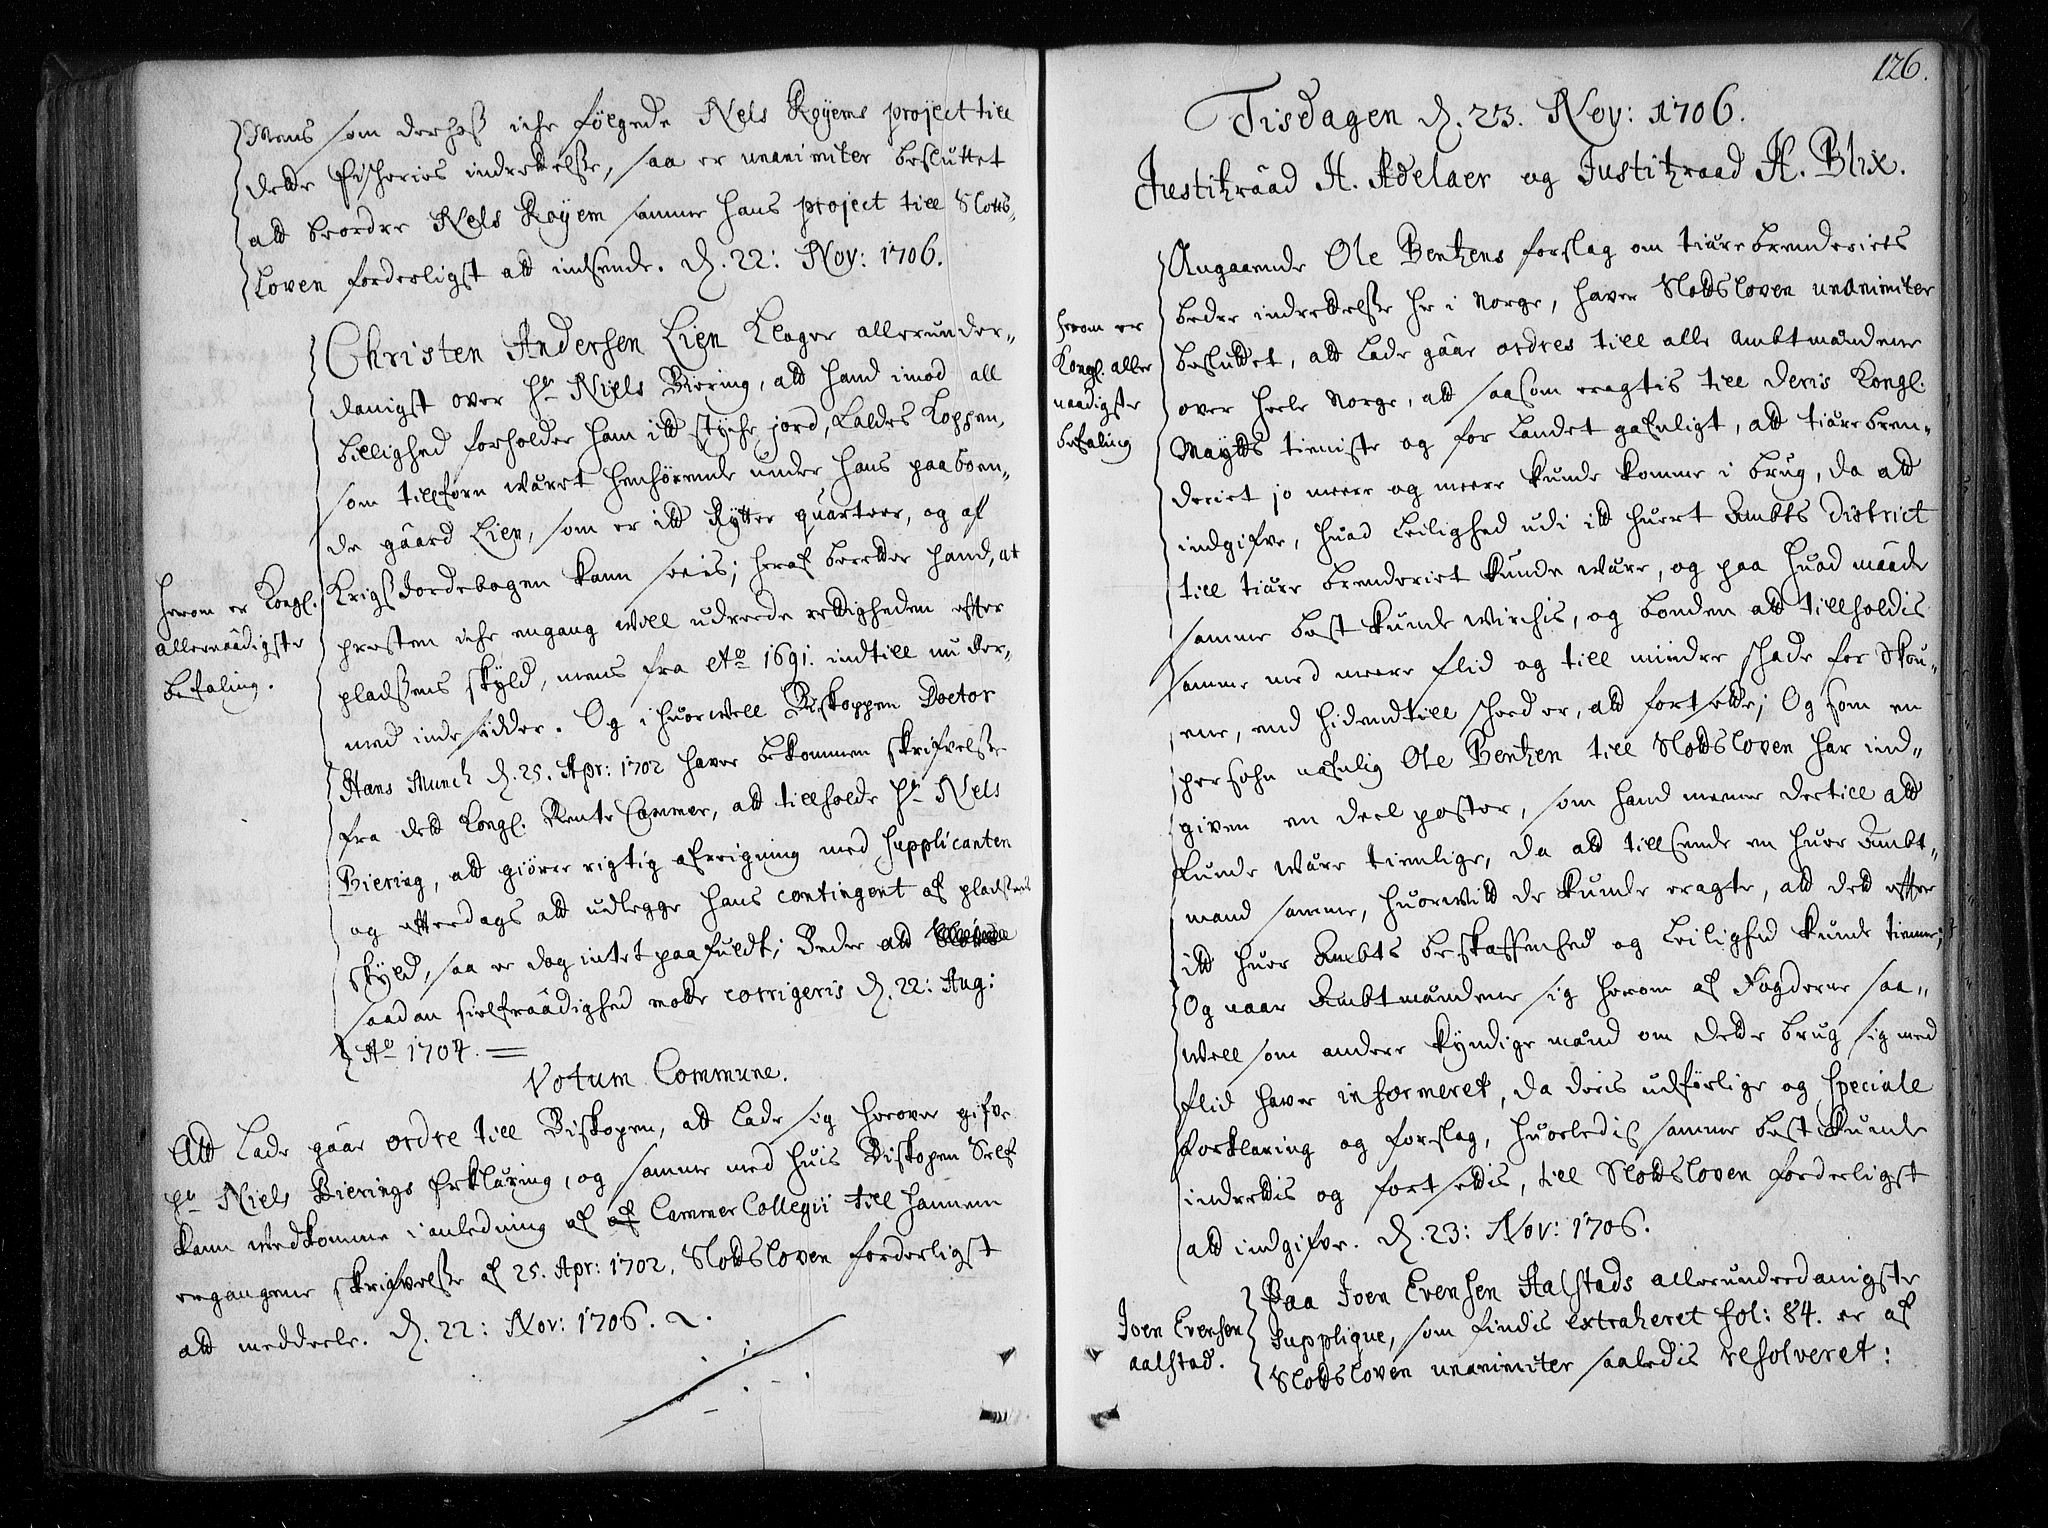 Mens som derhoß iche følgede Niels Røyems project till
dette Fischeries indrettelße, saa er unanimiter besluttet
att beordre Niels Røyem samme hans project till Slots-
Loven forderligst att indsende. D. 22: Nov: 1706.
Christen Andersen Lien klager allerunder-
danigst over Hr Niels Biering, att hand imod all
billighed forholder ham itt støche jord, kaldes Koppen,
som tillforn wäret henhörende under hans paaboen-
de gaard Lien, som er itt Rytter quarteer, og af
Krigsjordebogen kann seeis; heraf beretter hand, at
presten iche engang will udreede rettigheden efter
pladsens skyld, mens fra Ao 1691. indtill nu der-
med inde sidder. Og i huorwell Biskoppen Doctor
Hans Munch d. 25. Apr: 1702 haver bekommen skrifvelse
fra dett Kongl. Rente Cammer, att tillholde Hr Niels
Biering, att giöre rigtig afreigning med Supplicanten
og efterdags att udlegge hans contingent af pladsens
skyld, saa er dog intet paafuldt; Beder att
saadan sielfraadighed motte corrigeris d. 22: Aug:
Ao 1704.
Herom er Kongl.
allernaadigste
befaling.
Votum Commune.
Att lade gaar ordre till Biskopen, att lade sig herover gifve
Hr Niels Bierings Erklæring, og samme med huis Biskopen Self
kann vedkomme i anledning af af Cammer Collegii till hannem
ergangene skrifvelse af 25. Apr: 1702, Slottsloven forderligst
att meddeele. D. 22: Nov: 1706.
126.
Tisdagen d. 23. Nov: 1706.
Justitzraad H. Adelaer og Justitzraad H. Blix.
Angaaende Ole Bentzens forslag om tiære brenderiets
bedre indrettelse her i Norge, haver Slottsloven unanimiter
besluttet, att lade gaar ordres till alle Ambtmændene
over heele Norge, att saasom eragtis till deris Kongl.
Maytts tieniste og for landet gafnligt, att tiære bren-
deriet jo meere og meere kunde komme i brug, da att
indgifve, huad leilighed udi itt huert Ambts District
till tiære brenderiet kunde wære, og paa huad maade
samme best kunde wirchis, og bonden att tillholdis
samme med meere flid og till mindre schade for Skou-
ene, end hidendtill scheed er, att fortsette; Og som en
persohn nafnlig Ole Bentzen till Slottsloven har ind-
given en deel poster, som hand mener dertill att
kunde wære tienlige, da att tillsende en huer Ambt-
mand samme, huorwitt de kunde eragte, att dett efter
itt huer Ambts beskaffenhed og leilighed kunde tienne;
Og naar Ambtmændene sig herom af Fogderne saa-
well som andere kyndige mænd om dette brug sig med
flid haver informeret, da deris udførlige og Speciale
forklaring og forslag, huorledis samme best kunde
indrettis og fortsettis, till Slottsloven forderligst
att indgifve. D. 23: Nov: 1706.
Herom er
Kongl. aller
naadigste
befaling
Paa Joen Evensen Aalstads allerunderdanigste
Supplique, som findis extraheret fol: 84. er af
Slottsloven unanimiter saaledis resolveret:
Joen Evensen
aalstad.